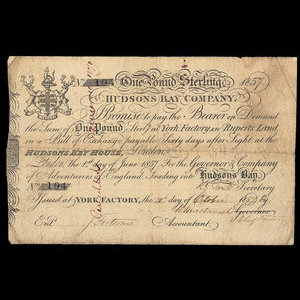 No. 194 One Pound Sterling 1657
HUDSONS BAY COMPANY.
Promise to pay the Bearer on Demand
the Sum of One Pound Sterl. at York Factory in Ruperts Land
in a Bill of Exchange payable Sixty days after Sight at the
HUDSONS BAY HOUSE, London.
London the 1st day of June 1857 For the Governor & Company
of Adventurers of England Trading into Hudsons Bay
No. 194 Secretary
Issued at YORK FACTORY, the day of October 185 Governor
Ent. Accountant.